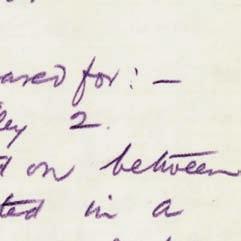 ased for:-
ley 2.
d on between
ted in a